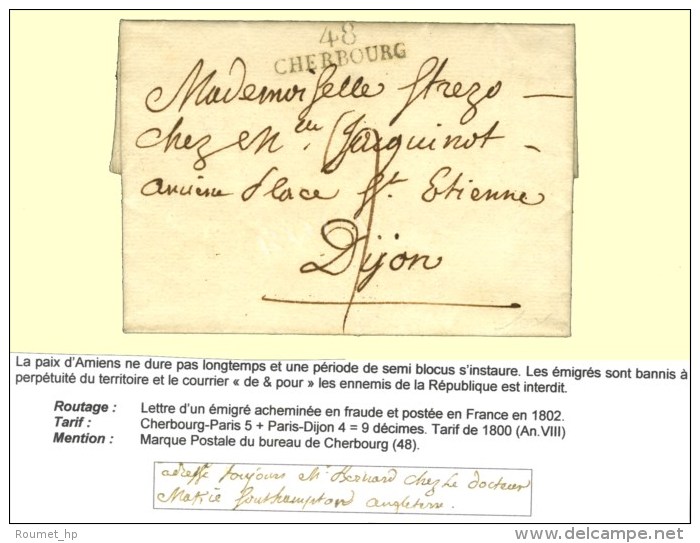 48
CHERBOURG
Mademoiselle Strezo —
chez Mr. Jacquinot -
ancienne place St. Etienne
Dijon
La paix d'Amiens ne dure pas longtemps et une période de semi blocus s'instaure. Les émigrés sont bannis à
perpétuité du territoire et le courrier « de & pour » les ennemis de la République est interdit.
Routage : Lettre d'un émigré acheminée en fraude et postée en France en 1802.
Tarif : Cherbourg-Paris 5 + Paris-Dijon 4 = 9 décimes. Tarif de 1800 (An.VIII)
Mention : Marque Postale du bureau de Cherbourg (48).
adresse toujours Mr. Bernard chez Le docteur
Makie Southampton angleterre.
Roumet_hp
delcampe.net